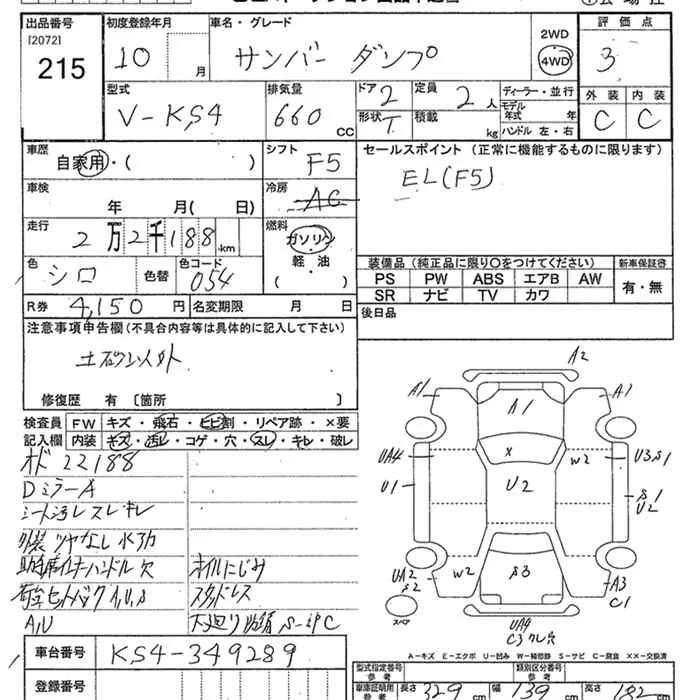 出品番号
[2072]
215
初度登録年月
10 月
車名・グレード
サンバー ダンプ
2WD
4WD
評価点
3
外装 内装
C C
型式
V-KS4
排気量
660 CC
ドア
2
形状 T
定員
2 人
積載 kg
ディーラー・並行
モデル年式 年
ハンドル 左・右
車歴
自家用・( )
シフト
F5
セールスポイント (正常に機能するものに限ります)
EL(F5)
車検
年 月( 日)
冷房
AC
走行
2万2千188km
燃料
ガソリン
軽・油
( )
色
シロ
色替
色コード
054
装備品 (純正品に限り○をつけてください)
新車保証書
PS PW ABS エアB AW
SR ナビ TV カワ
有・無
R券 4,150 円
名変期限 月 日
後日品
注意事項申告欄 (不具合内容等は具体的に記入して下さい)
修復歴 有 〔箇所 〕
検査員記入欄
FW キズ・飛石・ヒビ割・リペア跡・×要
内装 キズ・汚レ・コゲ・穴・スレ・キレ・破レ
22188
DミラーA
シート汚レスレキレ
外装ツヤなし
オイルにじみ
スタッドレス
A,U
車台番号
KS4-349289
登録番号
A2
A1
A1
A1
UA4
U1
X
W2
U3,S1
U2
S1
U2
UA2
S2
W2
S3
A3
C1
スペア
UA4
C3
A-キズ E-エクボ U-凹み W-補修跡 S-サビ C-腐食 XX-交換済
型式指定番号
参考
類別区分番号
参考
車庫証明用
参考
長さ 329 cm
幅 139 cm
高さ 182 cm